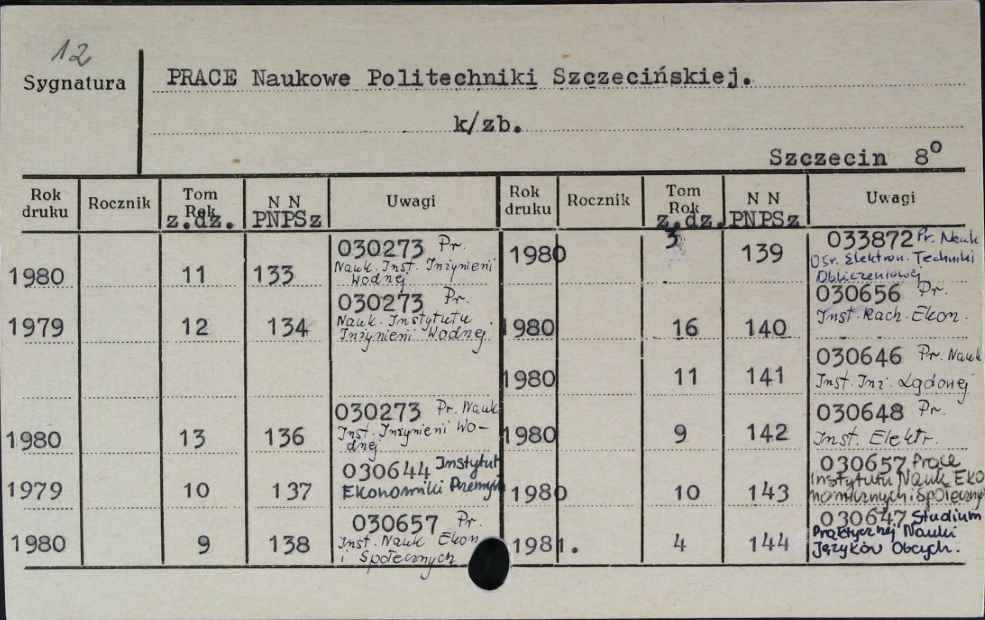 12
Sygnatura
PRACE Naukowe Politechniki Szczecińskiej.
k/zb.
Szczecin 8°
Rok druku Rocznik Tom Rok z.dz. N N PNPSz Uwagi
1980 11 133 030273 Pr. Nauk. Inst. Inżynierii Wodnej
1979 12 134 030273 Pr. Nauk. Instytutu Inżynierii Wodnej.
1980 13 136 030273 Pr. Nauk. Inst. Inżynierii Wo-
dnej
1979 10 137 030644 Instytut Ekonomiki Przemysłu
1980 9 138 030657 Pr. Inst. Nauk Ekon i Społecznych
Rok druku Rocznik Tom Rok z.dz. N N PNPSz Uwagi
1980 3 139 033872 Pr. Nauk Ośr. Elektron. Techniki Obliczeniowej
1980 16 140 030656 Pr. Inst. Rach. Ekon.
1980 11 141 030646 Pr. Nauk Inst. Inż. Lądowej
1980 9 142 030648 Pr. Inst. Elektr.
1980 10 143 030657 Prace Instytutu Nauk Eko
nomicznych i Społecznych
1981. 4 144 030647 Studium Praktycznej Nauki Języków Obcych.